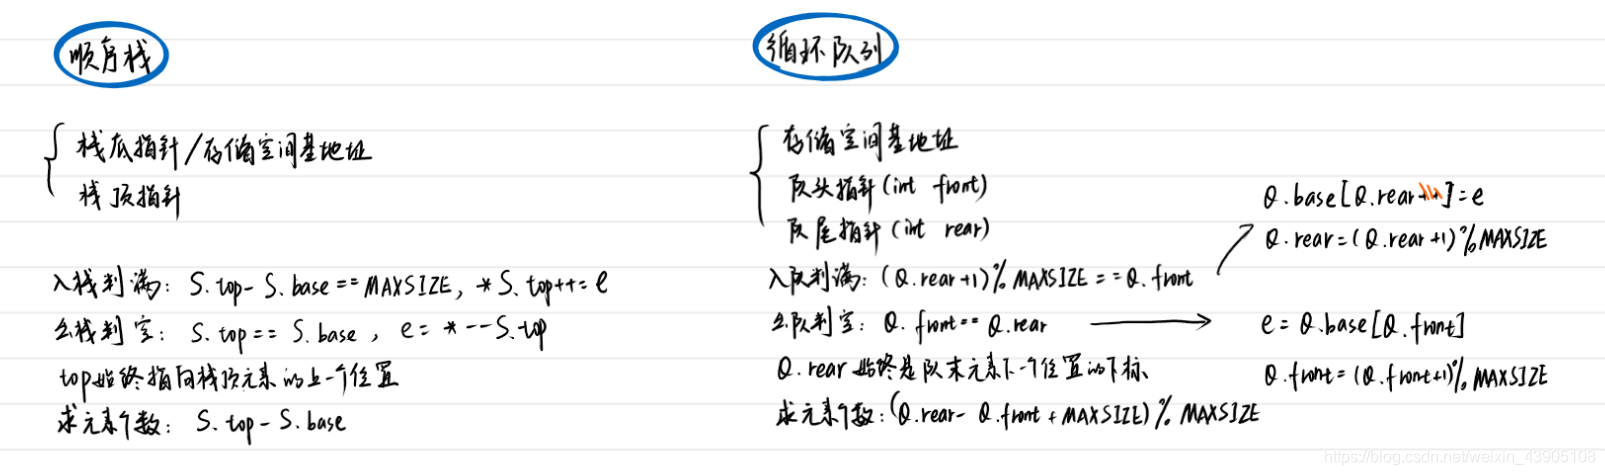 顺序栈
栈底指针/存储空间基地址
栈顶指针
入栈判满: S.top- S.base == MAXSIZE, *S.top++= e
出栈判空: S.top == S.base, e= *--S.top
top始终指向栈顶元素的上一个位置
求元素个数: S.top-S.base
循环队列
存储空间基地址
队头指针(int front)
队尾指针(int rear)
入队判满: (Q.rear+1)%MAXSIZE == Q.front
出队判空: Q.front == Q.rear
Q.rear始终是队末元素下一个位置的下标
求元素个数: (Q.rear- Q.front + MAXSIZE)% MAXSIZE
Q.base[Q.rear++]=e
Q.rear=(Q.rear+1)%MAXSIZE
e=Q.base[Q.front]
Q.front=(Q.front+1)%MAXSIZE
https://blog.csdn.net/weixin_43905108